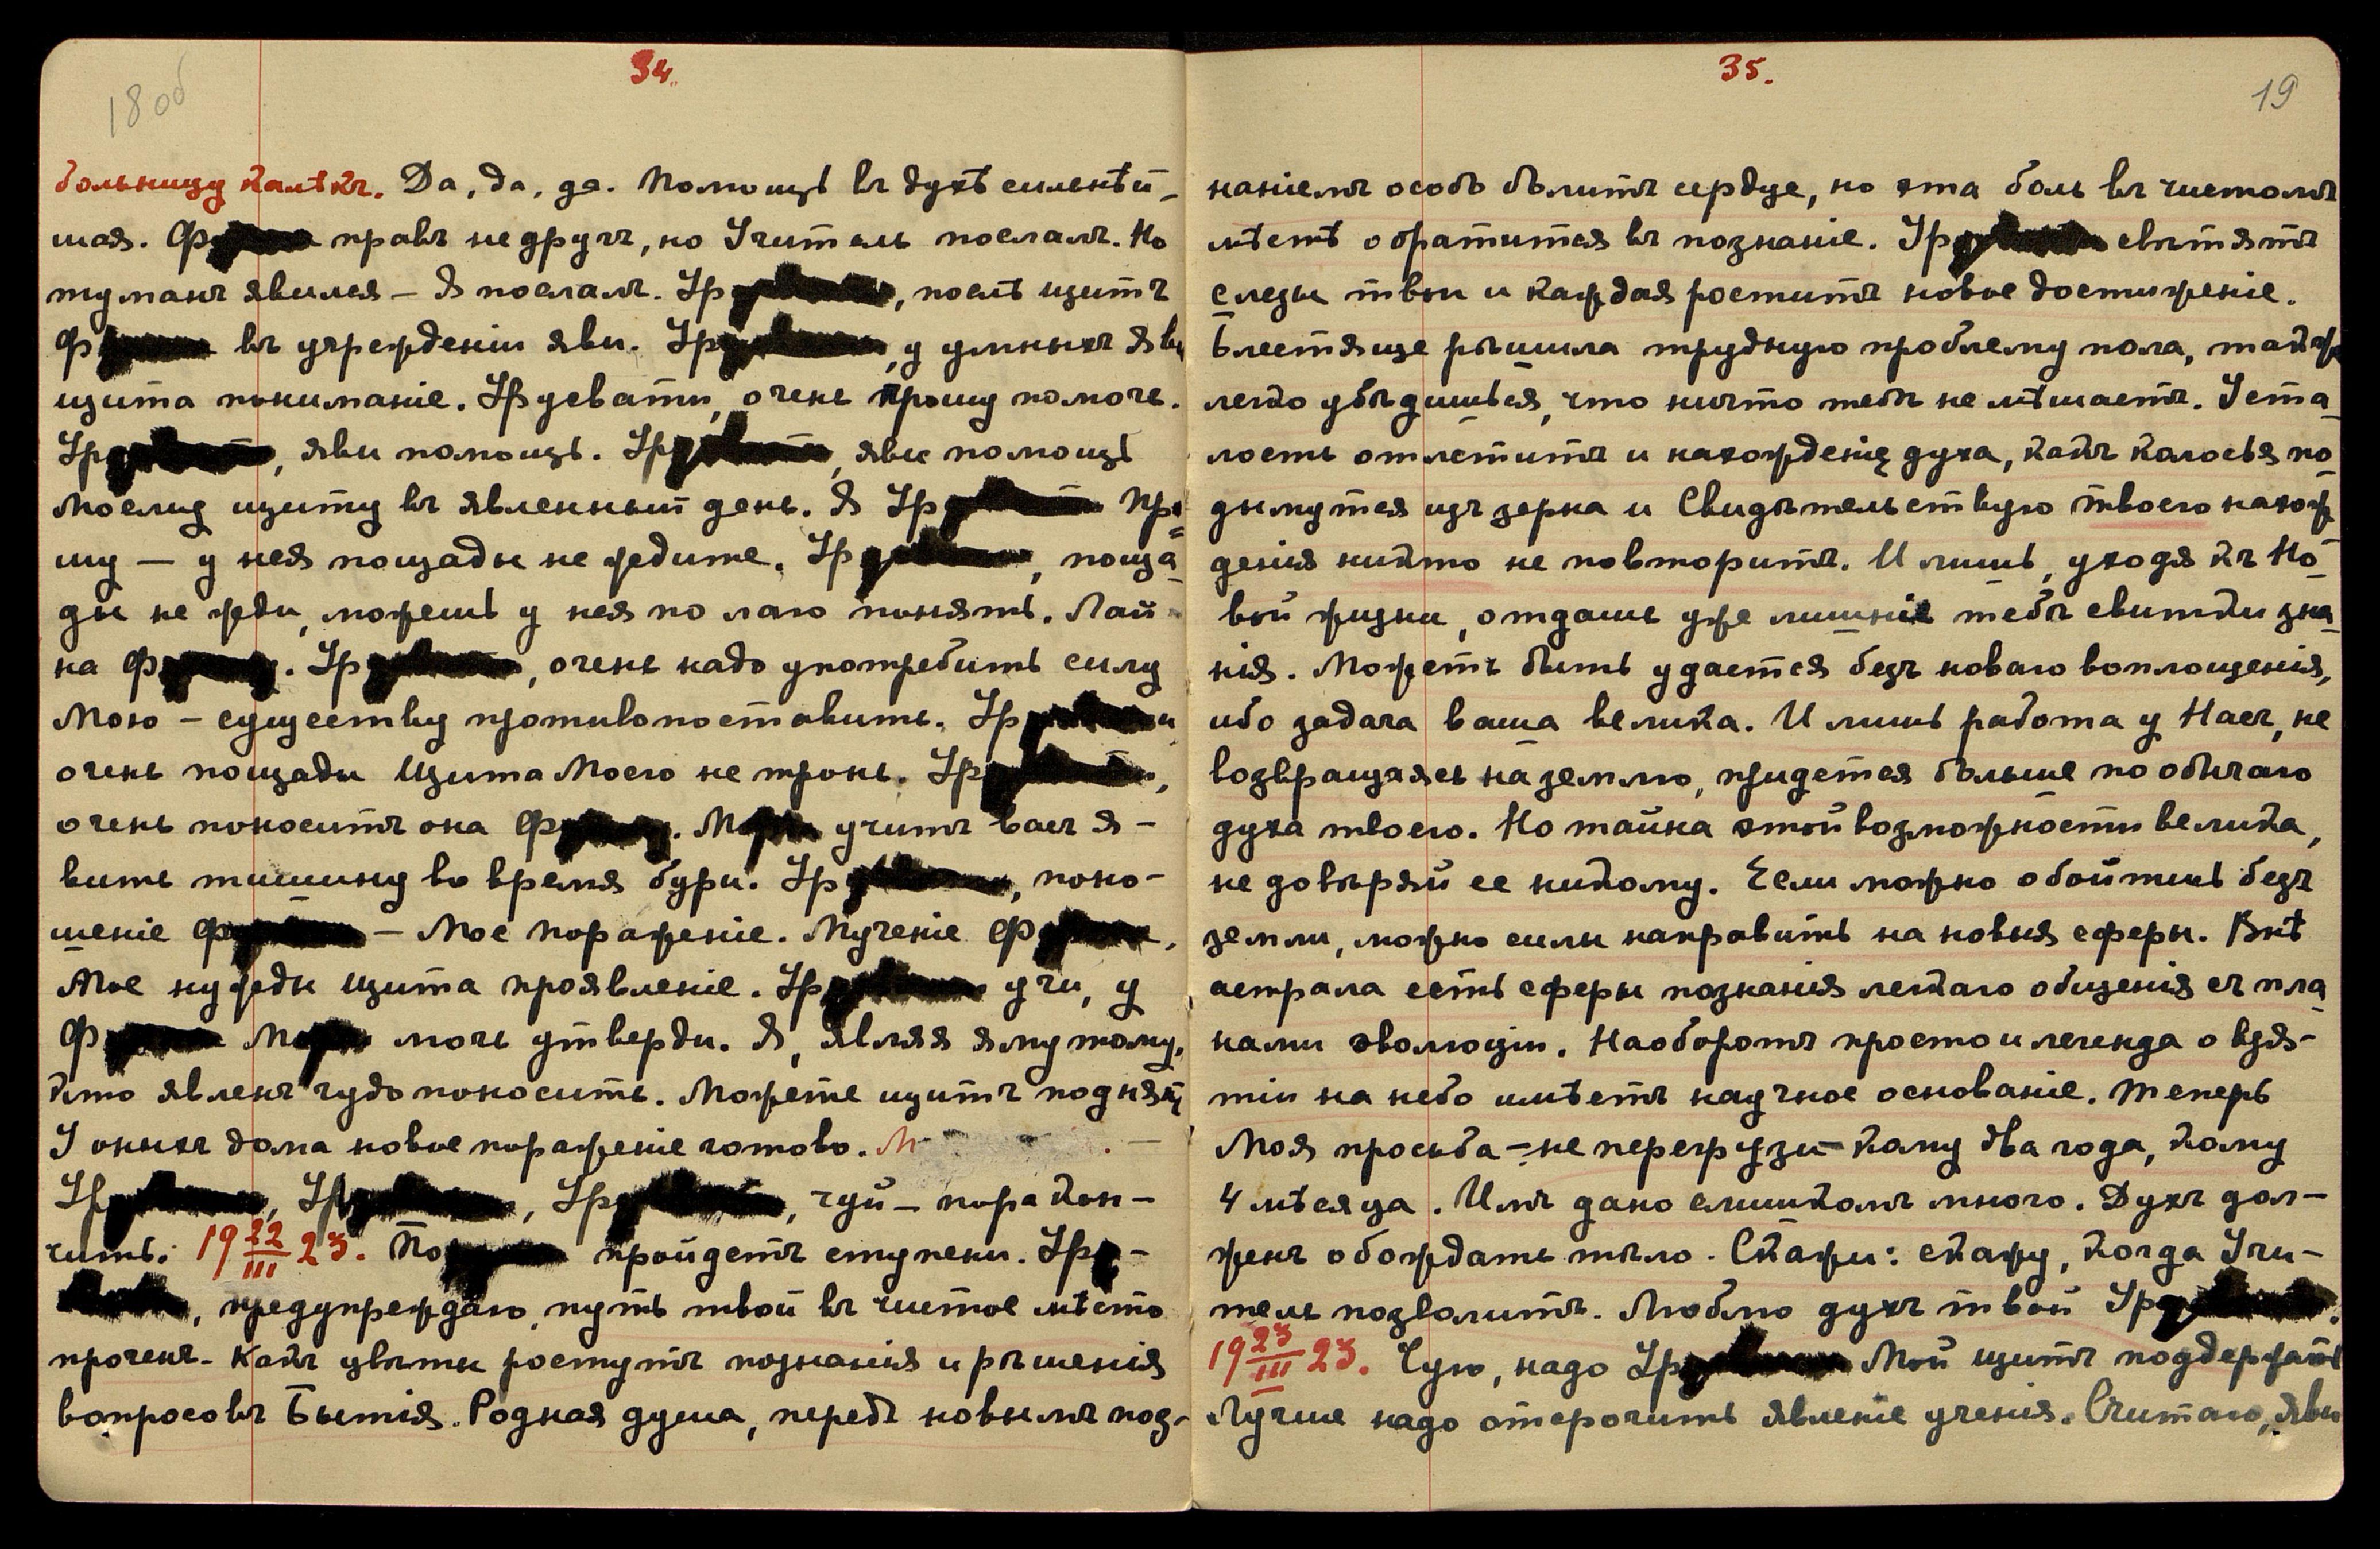 34.
18 об
больницу калѣкъ. Да, да, да. Помощь въ духѣ сильнѣй-
шая. Ф правъ не другъ, но Учитель послалъ. Но
туманъ явился – Я послалъ. Ур , послѣ щитъ
Ф въ учрежденіи яви. Ур , у умныхъ яви
щита пониманіе. Урусвати, очень прошу помочь.
Ур , яви помощь. Ур , яви помощь
Моему щиту въ явленный день. Я Ур про
шу – у нея пощады не ждите. Ур , поща
ды не жди, можешь у нея по лаю понять. Лай
на Ф . Ур , очень надо употребить силу
Мою – существу противопоставить. Ур и
очень пощади Щита Моего не тронь. Ур ,
очень поноситъ она Ф . М учитъ васъ я-
вить тишину во время бури. Ур , поно-
шеніе Ф – Мое пораженіе. Мученіе Ф ,
Мое нужды щита проявленіе. Ур учи, у
Ф М мочь утверди. Я, являя яму тому,
кто явленъ чудо поносить. Можете щитъ поднять
У оныхъ дома новое пораженіе готово. М
Ур , Ур , Ур , чуй – пора кон-
чить. 19 22/III 23. По пройдетъ ступени. Ур -
, предупреждаю, путь твой въ чистое мѣсто
проченъ. Какъ цвѣты ростутъ познанія и рѣшенія
вопросовъ Бытія. Родная душа, передъ новымъ поз-
35.
19
наніемъ особо болитъ сердце, но эта боль въ чистомъ
мѣстѣ обратится въ познаніе. Ур свѣтятъ
слезы твои и каждая роститъ новое достиженіе.
Блестяще рѣшила трудную проблему пола, такъ же
легко убѣдишься, что ничто тебѣ не мѣшаетъ. Уста
лость отлетитъ и нахожденія духа, какъ колосья по
дымутся изъ зерна и Свидѣтельствую твоего нахож
денія никто не повторитъ. И лишь, уходя къ Но
вой жизни, отдашь уже лишніе тебѣ свитки зна
нія. Можетъ быть удастся безъ новаго воплощенія,
ибо задача ваша велика. И лишь работа у Насъ, не
возвращаясь на землю, придется больше по обычаю
духа твоего. Но тайна этой возможности велика,
не довѣряй ее никому. Если можно обойтись безъ
земли, можно силы направить на новыя сферы. Внѣ
астрала есть сферы познанія легкаго общенія съ пла
нами эволюціи. Наоборотъ просто и легенда о взя-
тіи на небо имѣетъ научное основаніе. Теперь
Моя просьба – не перегрузи – кому два года, кому
4 мѣсяца. Имъ дано слишкомъ много. Духъ дол-
женъ обождать тѣло. Скажи: скажу, когда Учи-
тель позволитъ. Люблю духъ твой Ур .
19 23/III 23. Чую, надо Ур Мой щитъ поддержать
Лучше надо отсрочить явленіе ученія. Считаю, яви